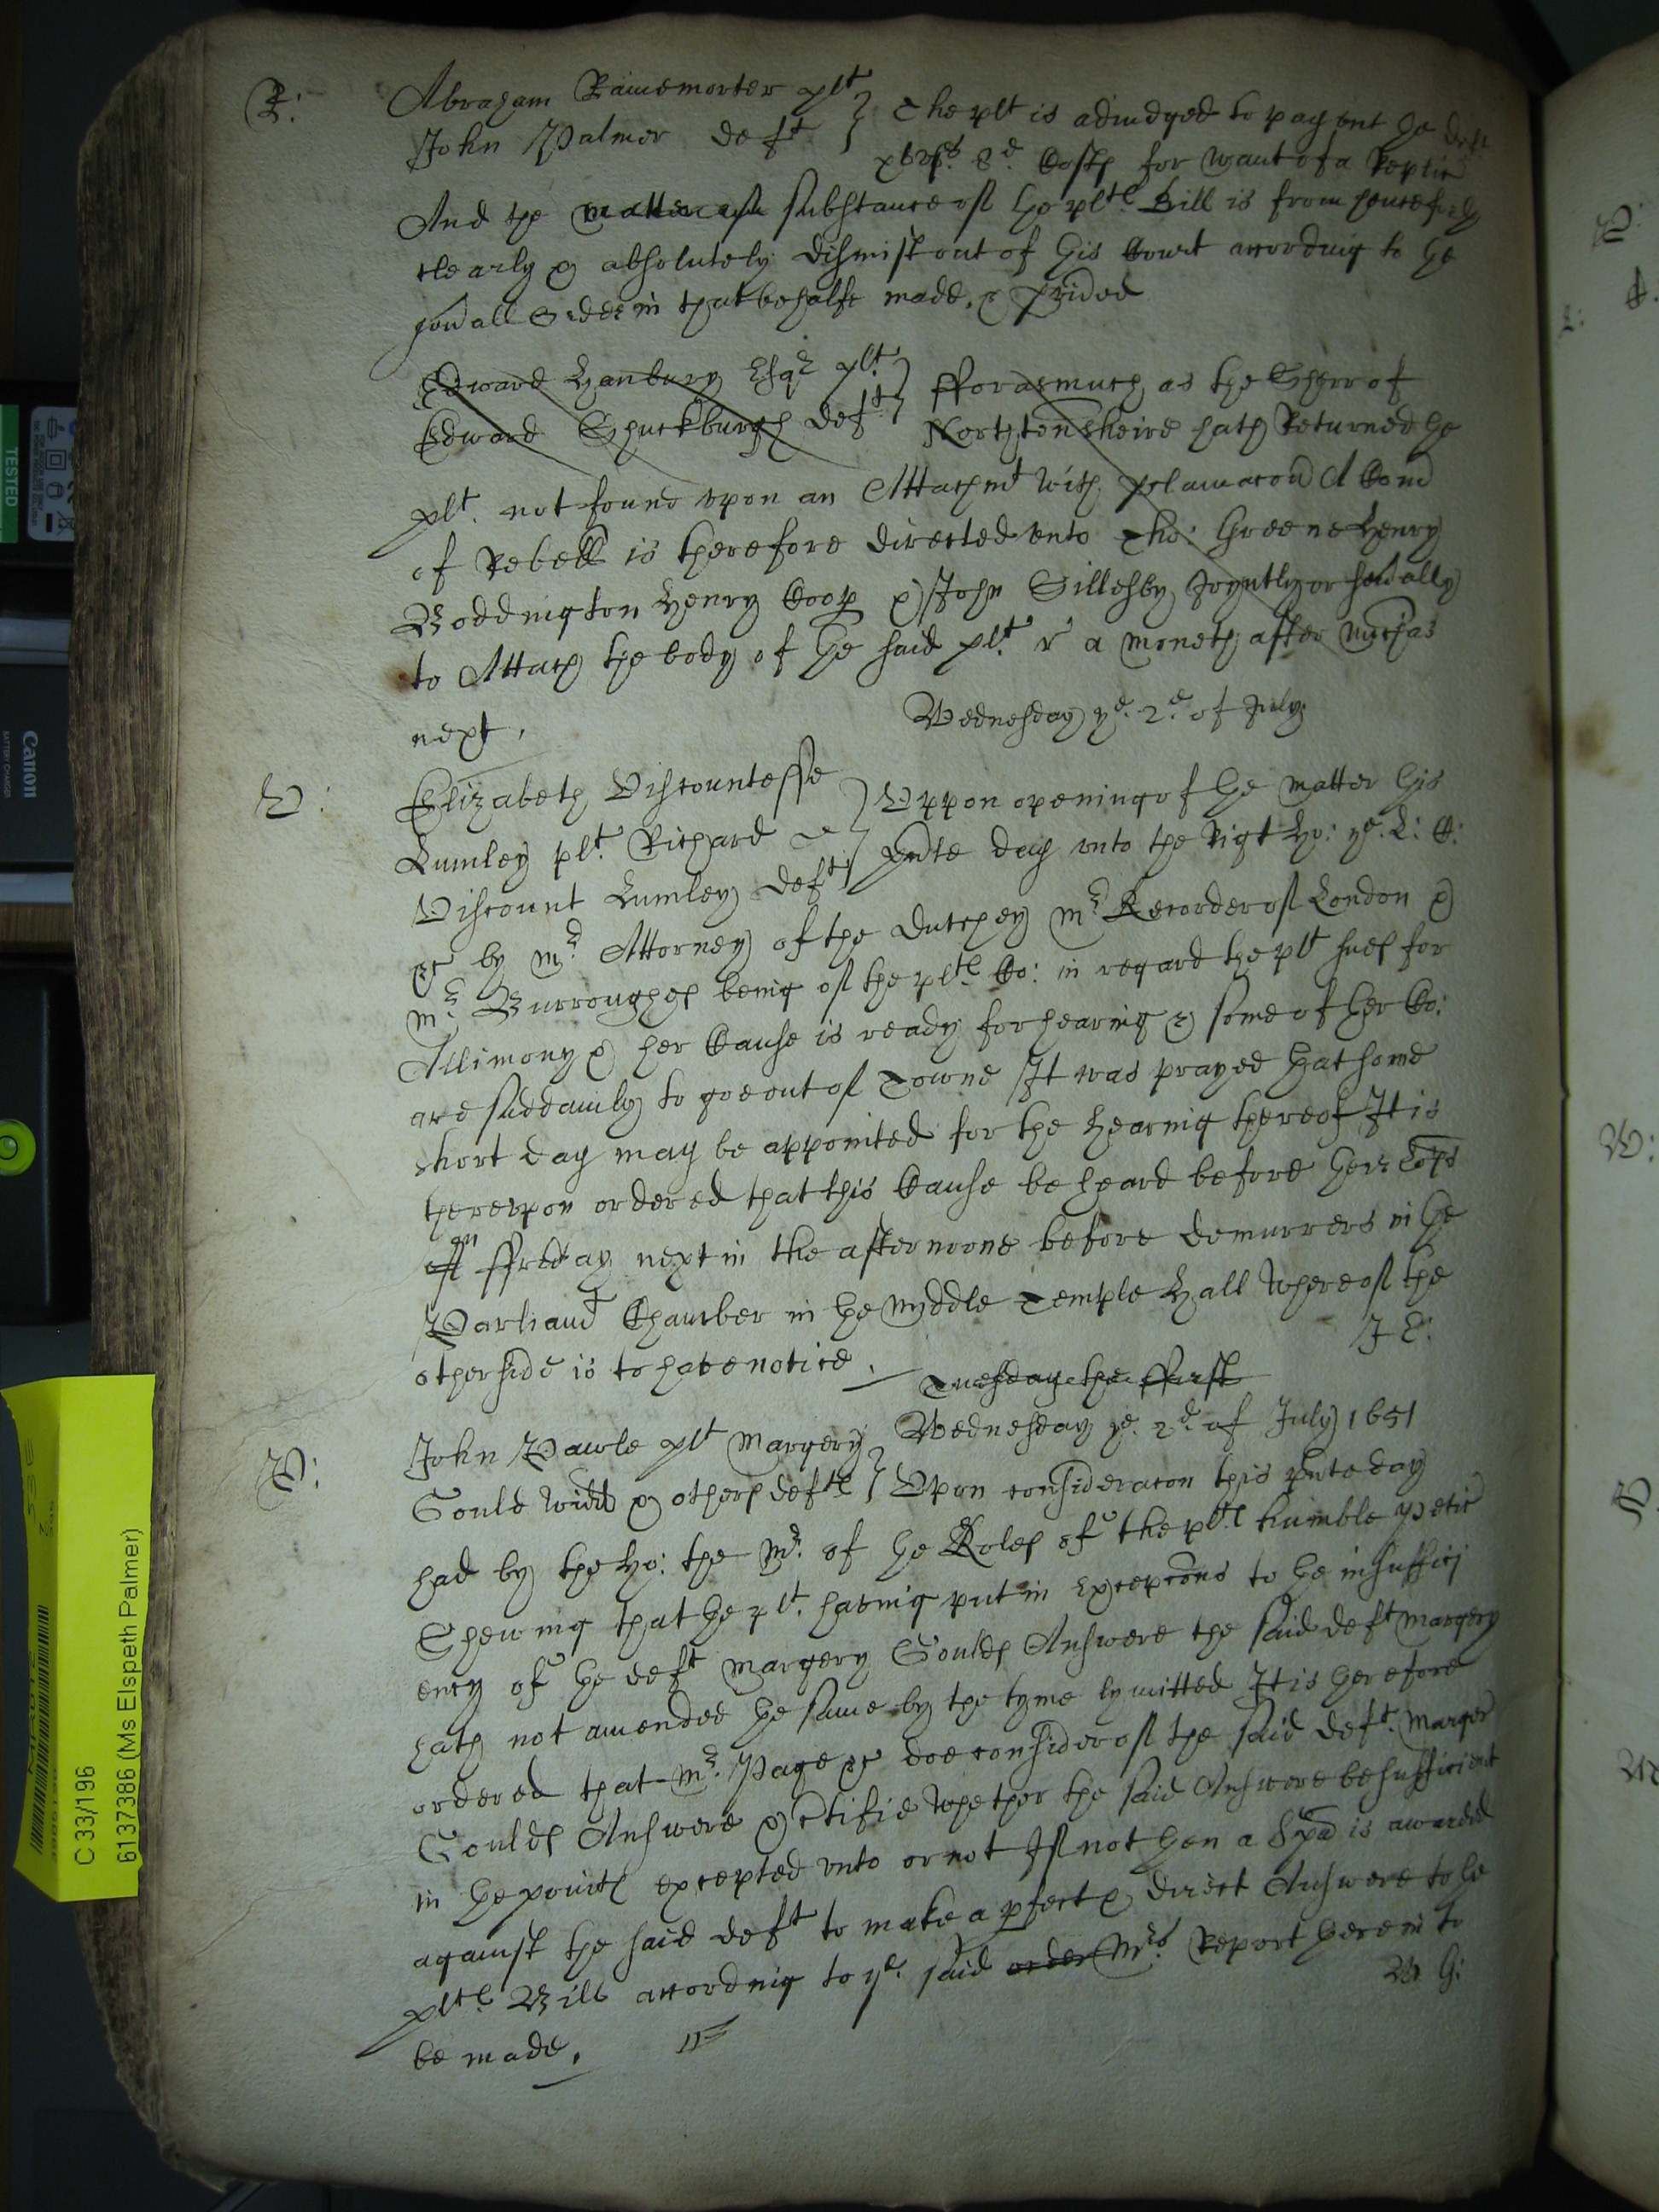 R:
Abraham Rainemorter plt } The plt is adiudged to pay vnt the deft
John Palmer deft } 8d. Costs for want of a Replic
And the matter substance of the plts Bill is from henceforth
clearly & absolutely dismist out of this Court according to the
genall Order in that behalfe made, & pvided
Edward Hanbury Esqr plt. } fforasmuch as the Sherr of
Edward Shuckburgh deft } Northtonsheire hath Returned the
plt. not found vpon an Attachmt with pclamacon A Com
of Rebell is therefore directed vnto Tho: Greene Henry
Boddington Henry Coop & John Billesby Joyntly or sevally
to Attach the body of the said plt. r a moneth after Michas
next,
Wednesday ye. 2d. of July:
V:
Elizabeth Viscountesse
Lumley plt. Richard } Vppon opening of the matter this
Viscount Lumley deft } pnte day vnto the Right Ho: ye. L: C:
&c by Mr Attorney of the Dutchey Mr Recorder of London &
Mr Burroughes being of the plts Co: in regard the plt sues for
Allimony & her Cause is ready for hearing & some of her Co:
are suddainly to goe out of Towne It was prayed that some
short day may be appointed for the hearing thereof It is
therevpon ordered that this Cause be heard before their Lopps
of on ffryday next in the afternoone before demurrers in the
Parliamt Chamber in the Myddle Temple Hall whereof the
other side is to have notice.
J E:
Tuesday the ffirst
P:
John Pawle plt Margery } Wednesday ye. 2d. of July 1651
Gould widd & others defts } Vpon consideracon this pnte day
had by the Ho: the Mr. of the Roles of the plts humble petic
Shewing that the plt. having put in excepcons to the insuffici
ency of the deft Margery Goulds Answere the said deft Margery
hath not amended the same by the tyme lymitted It is therefore
ordered that Mr. Page &c doe consider of the said deft. Marger
Goulds Answere & ctifie whether the said Answere be sufficient
in the points excepted vnto or not If not then a Spa is awarded
against the said deft to make a pfect & direct Answere to the
plts Bill according to ye. said order Mrs Report herein to
be made,
W G:
TESTED
Canon
BATTERY CHARGER
C 33/196
6137386 (Ms Elspeth Palmer)